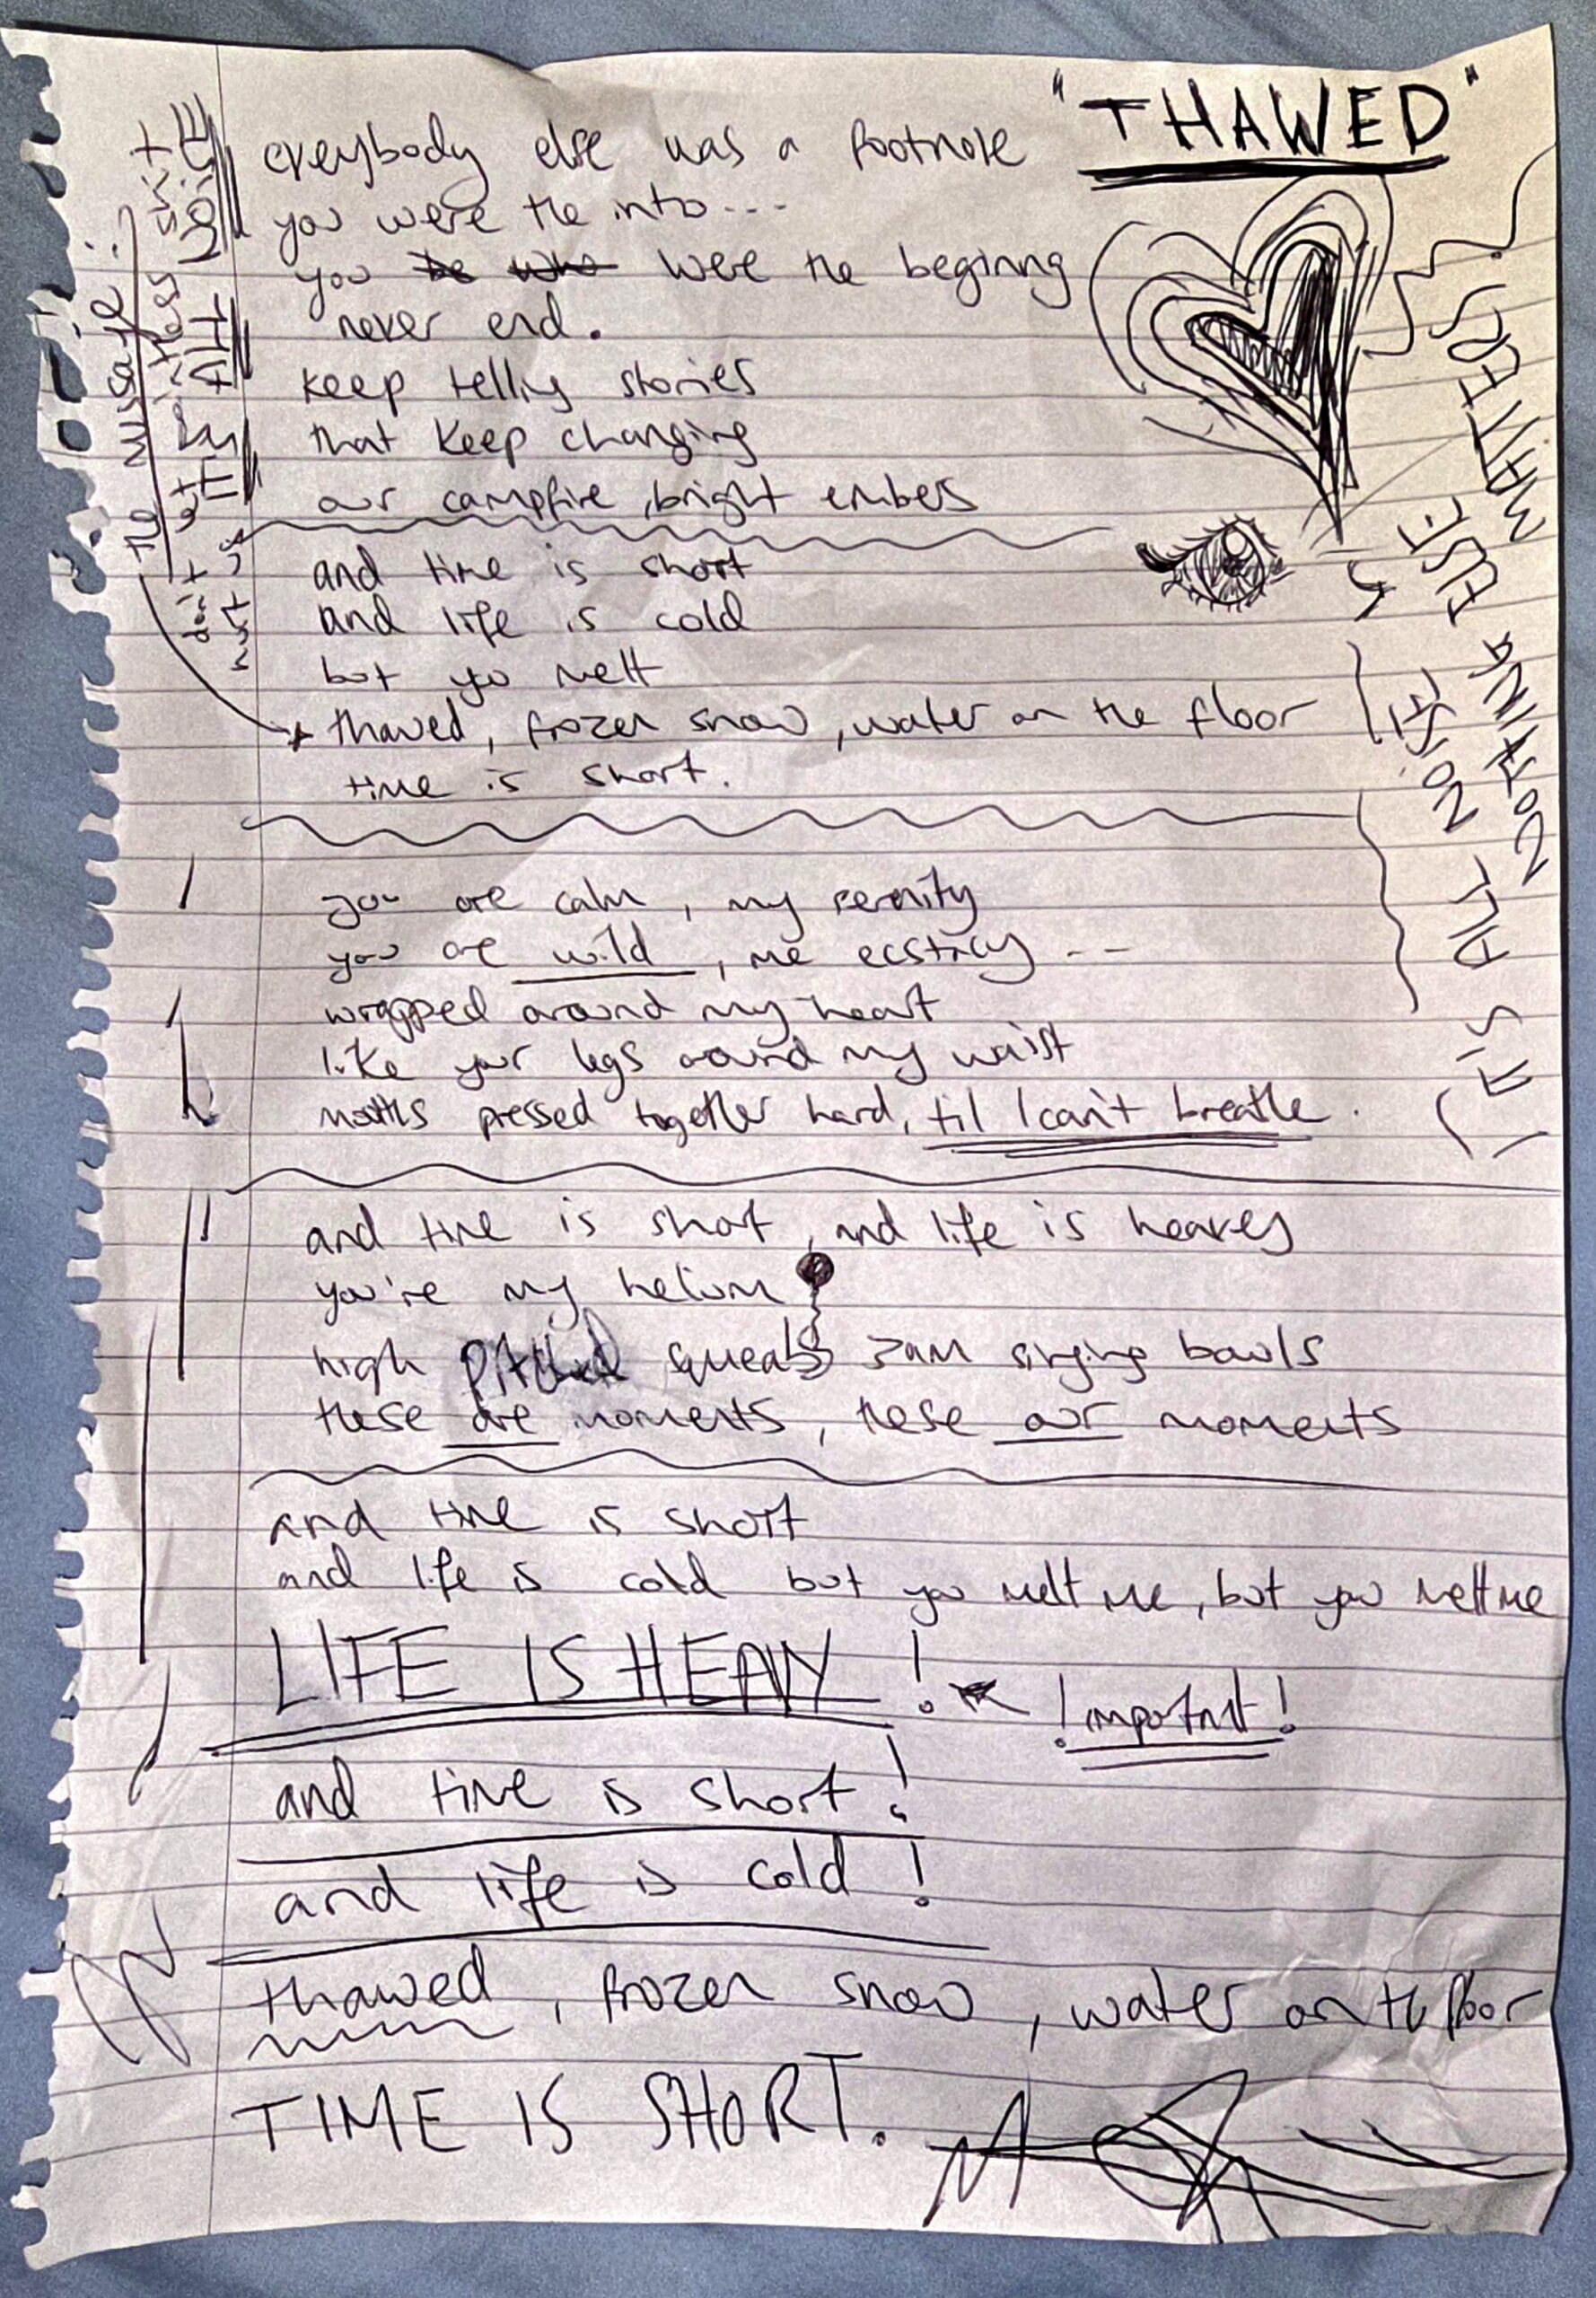 "THAWED"
everybody else was a footnote
you were the intro...
you be who were the beginng
never end.
keep telling stories
that keep changing
our campfire, bright embers
and time is short
and life is cold
but you melt
thawed, frozen snow, water on the floor
time is short.
you are calm, my serenity
you are wild, me ecstacy --
wrapped around my heart
like your legs around my waist
mouths pressed together hard, til I can't breathe.
and time is short, and life is heavey
you're my helium
high pitched squeals 3am singing bowls
these are moments, these our moments
and time is short
and life is cold but you melt me, but you melt me
LIFE IS HEAVY!
!important!
and time is short!
and life is cold!
thawed, frozen snow, water on the floor
TIME IS SHORT.
the message:
don't let pointless shit
hurt us
ITS ALL NOISE
IT IS ALL NOISE
NOTHING ELSE MATTERS.